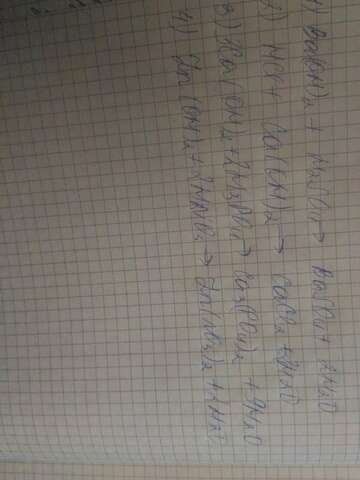 1) Ba(OH)2 + H2SO4 → BaSO4 + 2H2O
2) HCl + Ca(OH)2 → CaCl2 + 2H2O
3) Ca(OH)2 + 2H3PO4 → Ca3(PO4)2 + 9H2O
4) Zn(OH)2 + 2HNO3 → Zn(NO3)2 + 2H2O